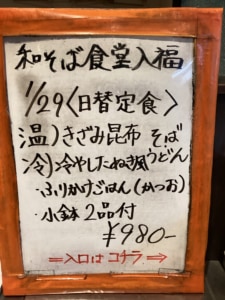 和そば食堂入福
1/29〈日替定食〉
温）きざみ昆布 そば
冷）冷やしたぬき風うどん
・ふりかけごはん（かつお）
・小鉢2品付
¥980-
⇒入口はコチラ→